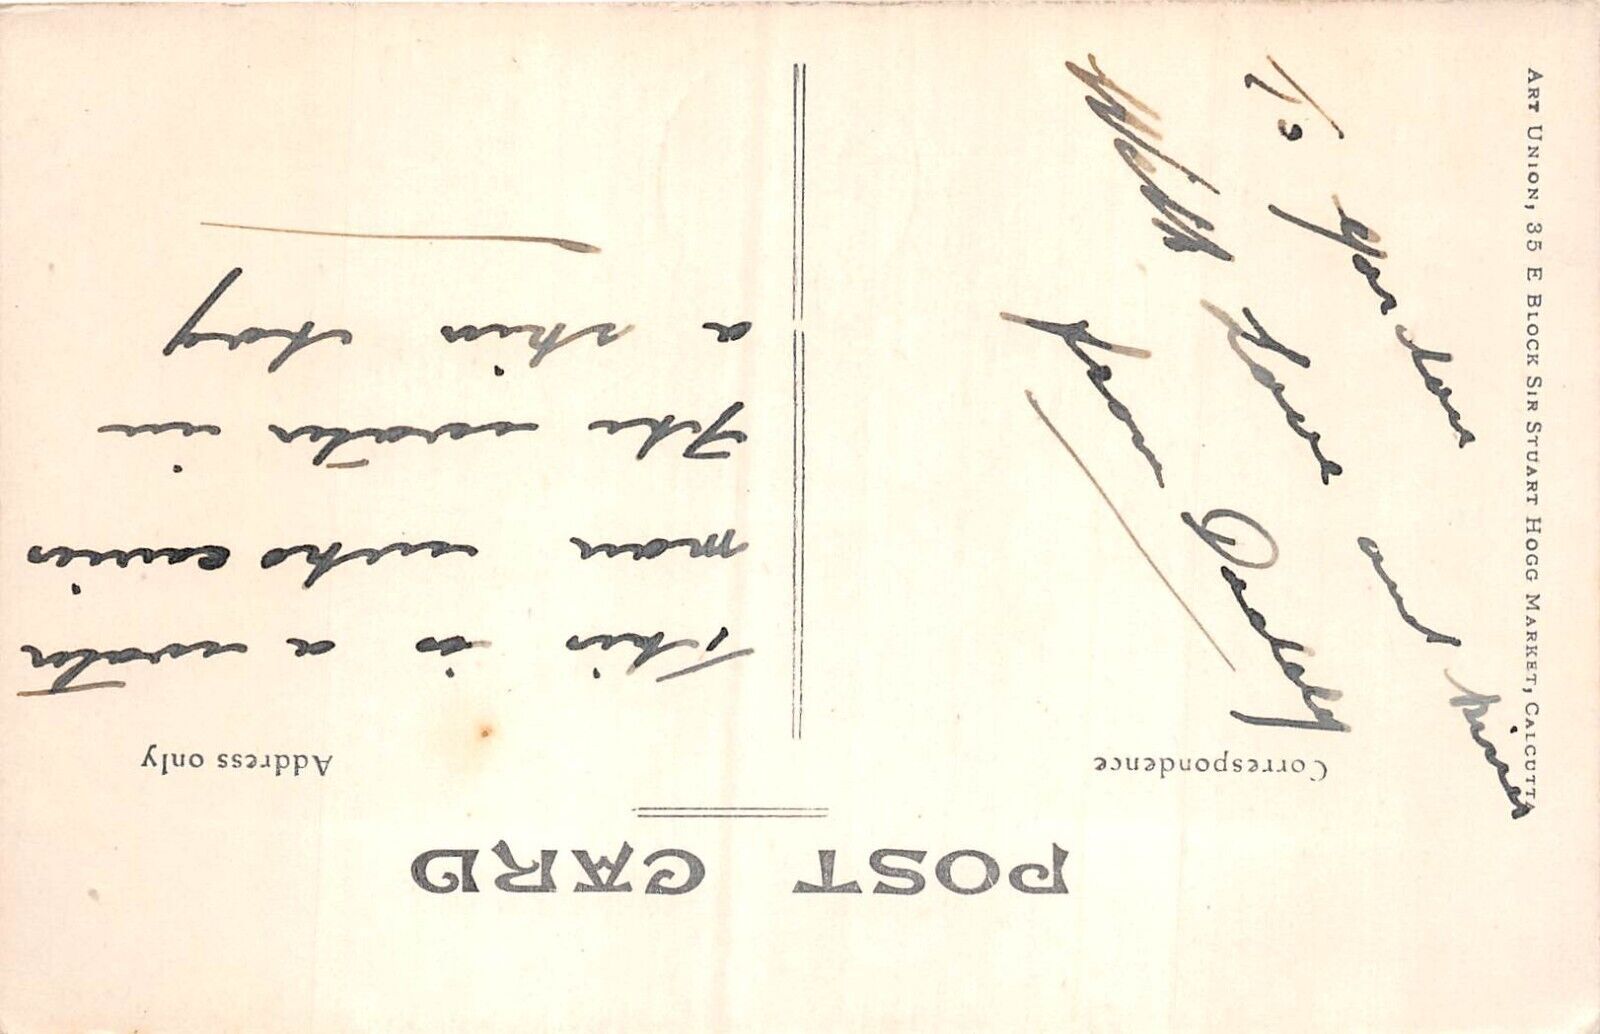 POST CARD
Correspondence
Address only
To Gordon
With Love and kisses
from Daddy
This is a water
man who carries
The water in
a skin bag
ART UNION, 35 E BLOCK SIR STUART HOGG MARKET, CALCUTTA